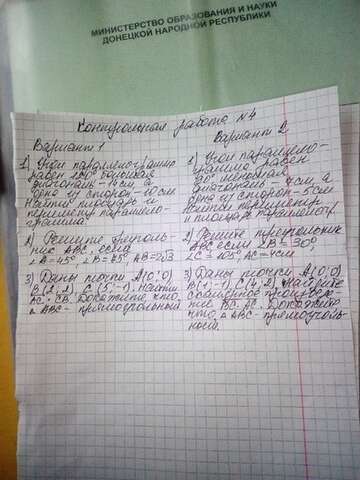 МИНИСТЕРСТВО ОБРАЗОВАНИЯ И НАУКИ
ДОНЕЦКОЙ НАРОДНОЙ РЕСПУБЛИКИ
Контрольная работа №4
Вариант 1
1) Угол параллелограмма
равен большая
диагональ - см, а
одна из сторон - 10 см
Найти площадь и
периметр паралело-
грамма
2) Решите треуголь-
ник АВС если
∠A=45° ∠B=75° AB=2√3
3) Даны точки A(0;0)
B(2;2), C(5;-1). Найти
AC·CB. Докажите, что
△ABC - прямоугольный
Вариант 2
1) Угол паралело-
грамма равен
диагональ см, а
одна из сторон - 5 см
Найти периметр
и площадь паралелогр.
2) Решите треугольник
ABC если ∠B=30°
∠C=105° AC=4см
3) Даны точки A(0;0)
B(1;-1) C(4;2) Найдите
скалярное произведе-
ние BC·AC. Докажите
что △ABC - прямоуголь-
ный.